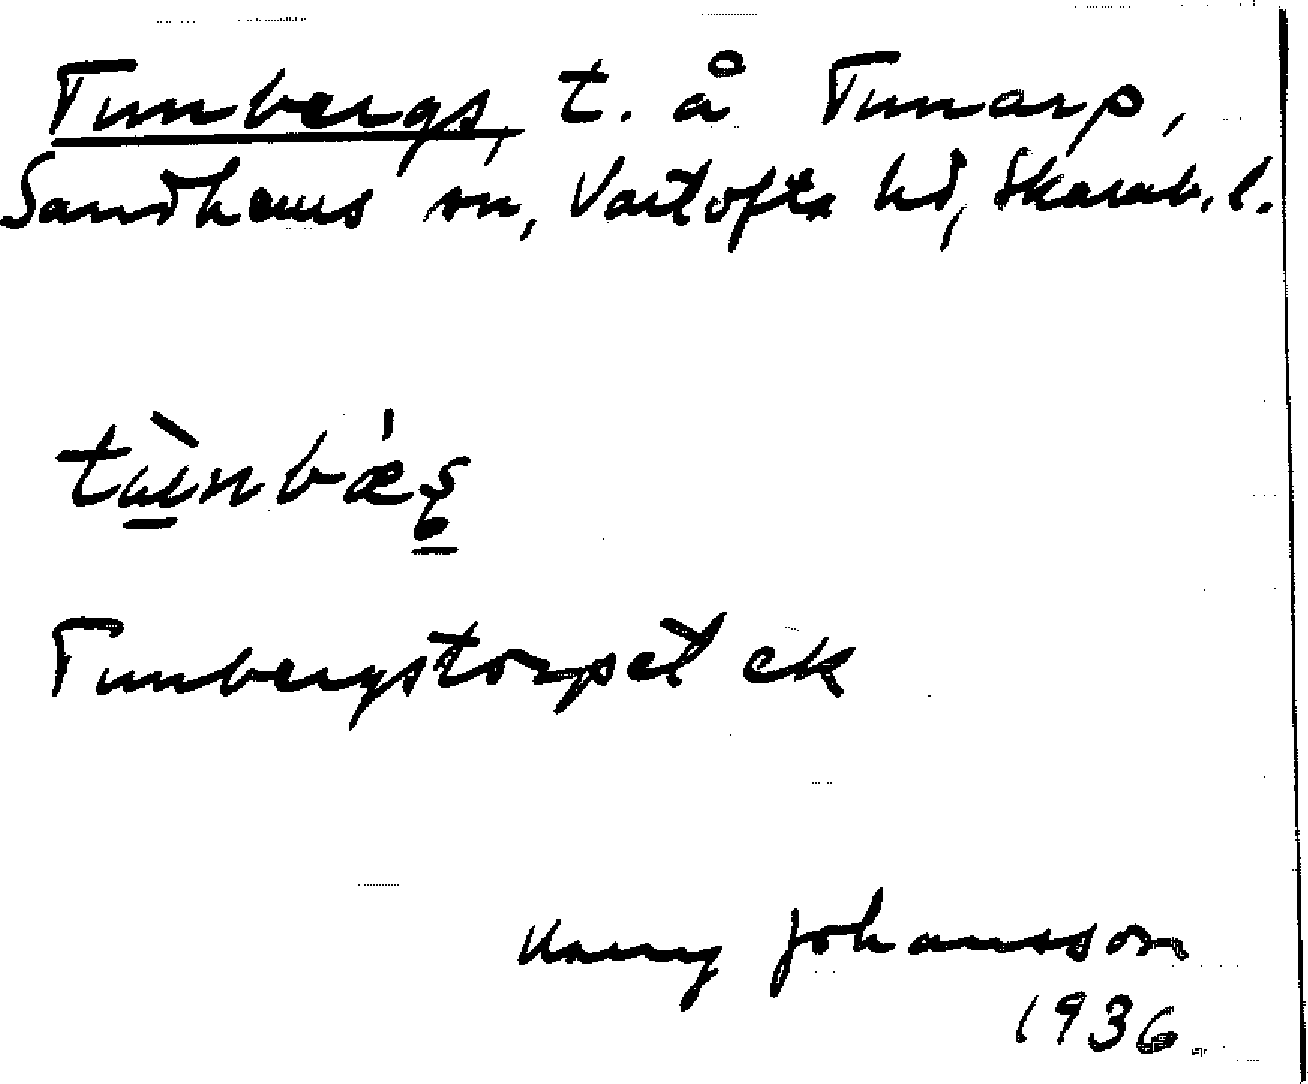 Tunbergs, t. å Tunarp,
Sandhems sn, Vartofta hd, Skarab. l.
Tunbergstorpet ek
Johansson
1936